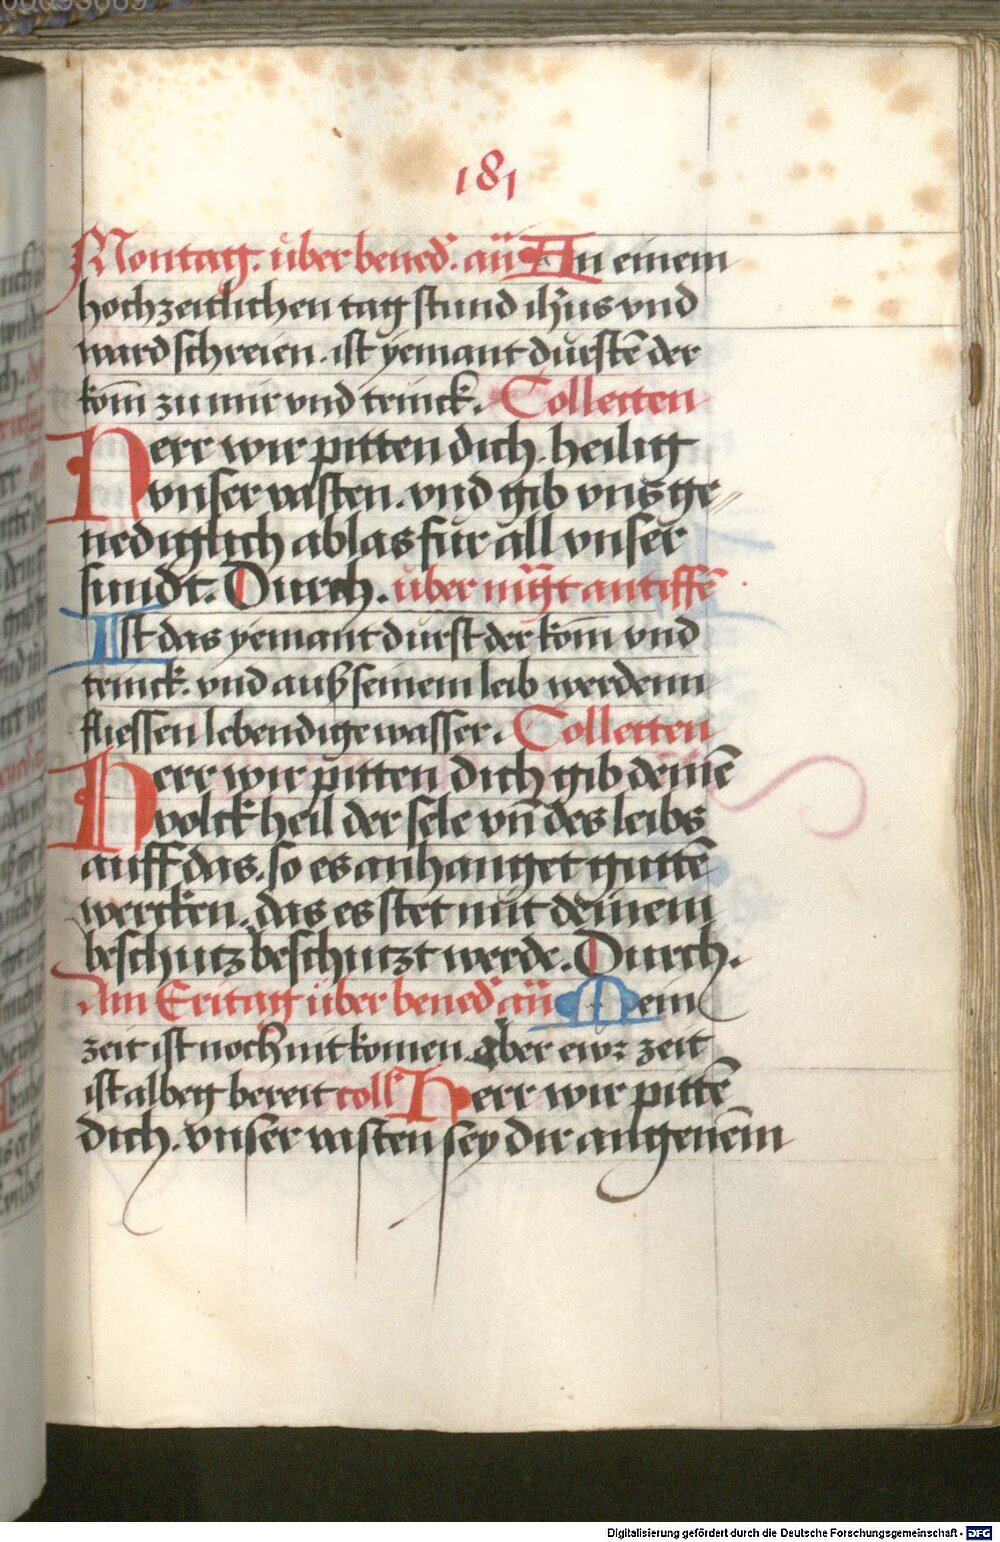 181
Montag. über bened̄. an̄ An einem
hochzeitlichen tag stund ih̄us vnd
ward schreien. ist yemant dürstē der
kom̄ zu mir vnd trinck. Collecten
Herr wir pitten dich. heilig
vnser vasten. vnd gib vns ge⸗
nediglich ablas für all vnser
sundt. Durch. über antiffē
Ist das yemant dürst der kom̄ vnd
trinck. vnd auß seinem leib werdenn
fliessen lebendige wasser. Collecten
Herr wir pitten dich gib deinē
volck heil der sele vn̄ des leibs
auff das. so es anhanget guttē
wercken. das es stet mit deinem
beschutz beschutzt werde. Durch.
Am Eritag über bened̄ an̄ Mein
zeit ist noch nit komen. aber ewr zeit
ist alberg bereit coll̄ Herr wir pittē
dich. vnser vasten sey dir angenem̄
Digitalisierung gefördert durch die Deutsche Forschungsgemeinschaft - DFG